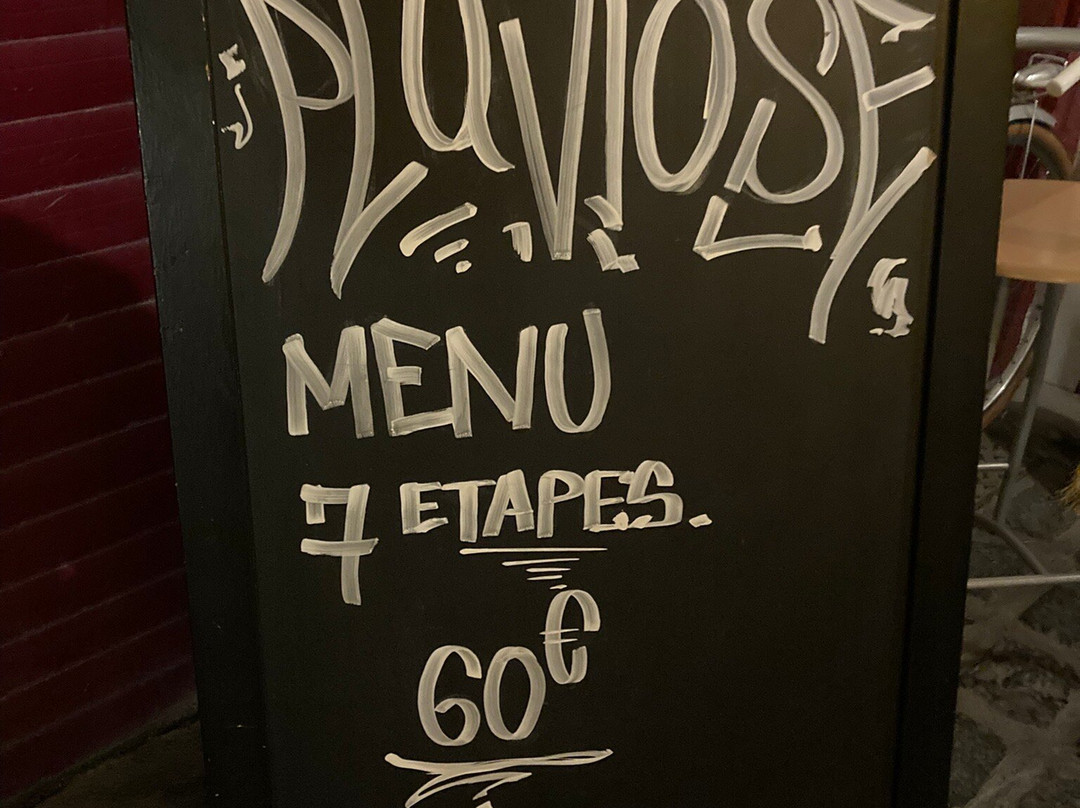 PLUVIOSE
MENU
7 ETAPES.
60€